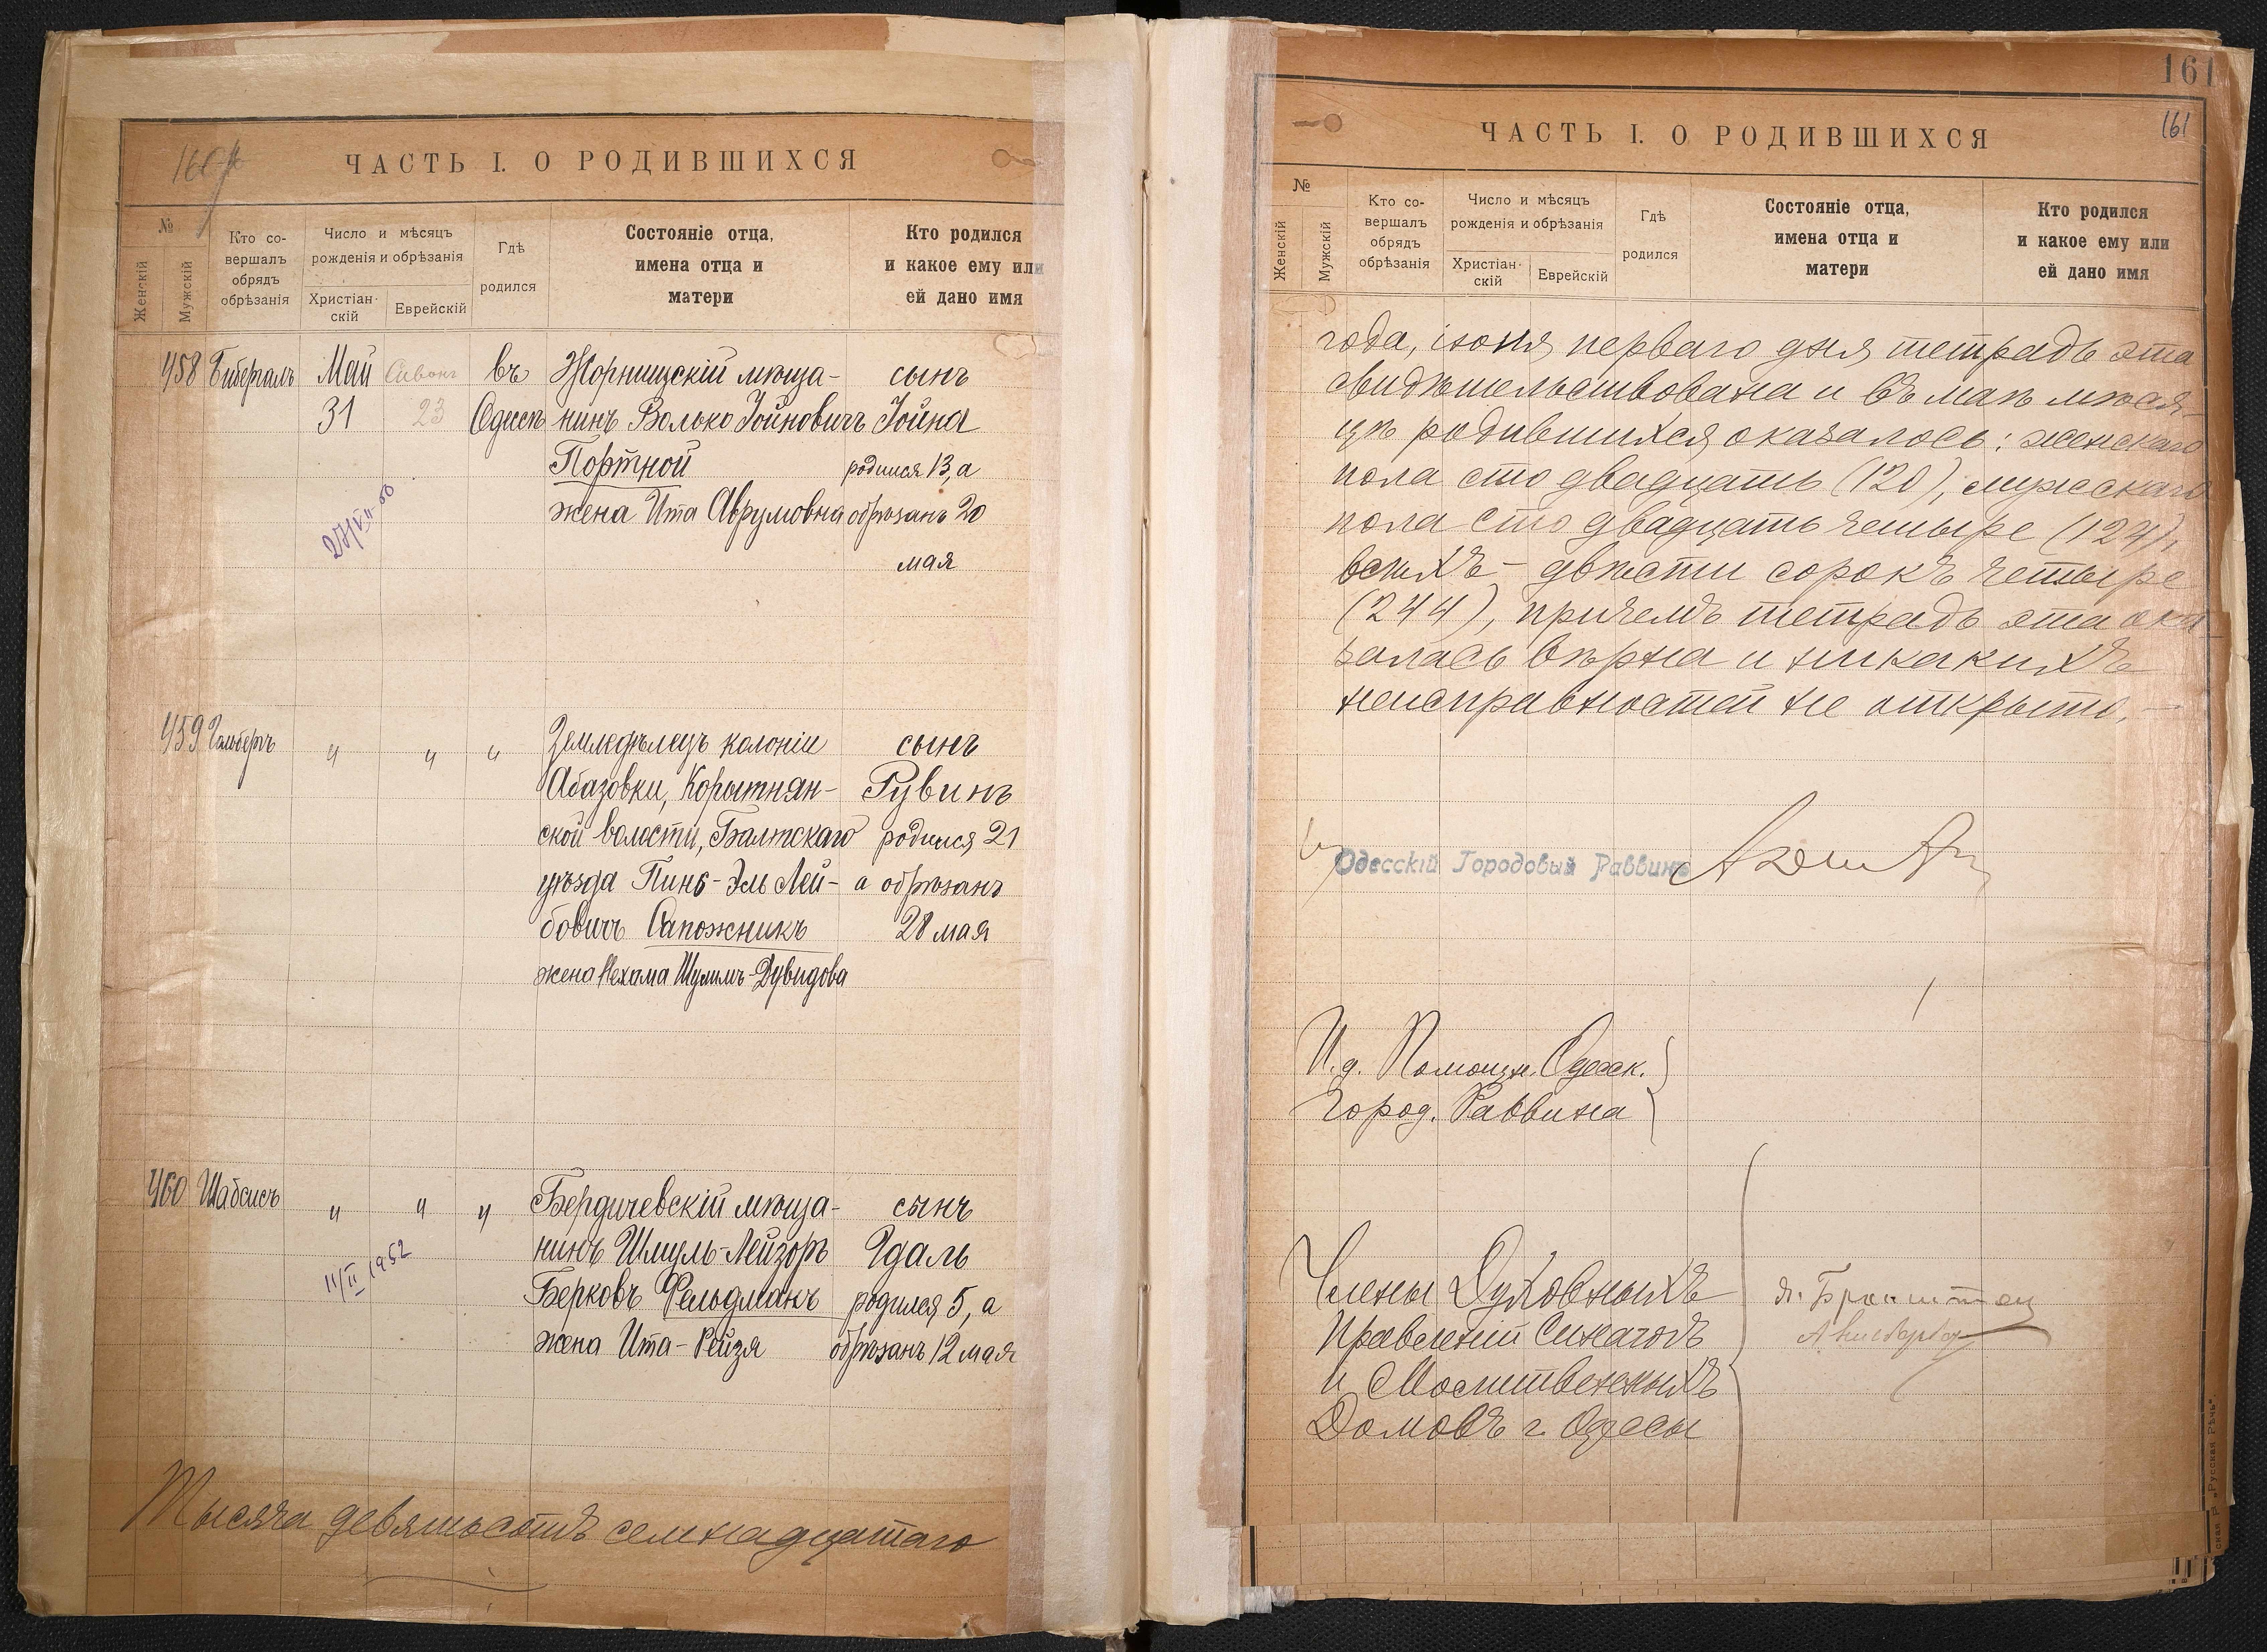 ЧАСТЬ I. О РОДИВШИХСЯ
№
Женскій
Мужскій
Кто со-
вершалъ
обрядъ
обрѣзанія
Число и мѣсяцъ
рожденія и обрѣзанія
Христіан-
скій
Еврейскій
Гдѣ
родился
Состояніе отца,
имена отца и
матери
Кто родился
и какое ему или
ей дано имя
458 Бибергалъ Май Сивонъ въ Жорнищскій мѣща- сынъ
31 23 Одессѣ нинъ Волько Іойновичъ Іойна
Портной родился 13, а
жена Ита Аврумовна обрѣзанъ 20
мая
459 Гольбертъ " " " Земледѣлецъ колоніи сынъ
Абазовки, Корытнян- Рувинъ
ской волости, Балтскаго родился 21
уѣзда Пинс-Эль Лей- а обрѣзанъ
бовичъ Сапожникъ 28 мая
жена Нехама Шулимъ-Дувидова
460 Шабсисъ " " " Бердичевскій мѣща- сынъ
11/II 1952
нинъ Шмуль-Лейзоръ Эдаль
Берковъ Фельдманъ родился 5, а
жена Ита-Рейзя обрѣзанъ 12 мая
Тысяча девятьсотъ семнадцатаго
161
161
ЧАСТЬ I. О РОДИВШИХСЯ
№
Женскій
Мужскій
Кто со-
вершалъ
обрядъ
обрѣзанія
Число и мѣсяцъ
рожденія и обрѣзанія
Христіан-
скій
Еврейскій
Гдѣ
родился
Состояніе отца,
имена отца и
матери
Кто родился
и какое ему или
ей дано имя
года, іюня перваго дня тетрадь эта
свидѣтельствована и въ маѣ мѣся-
цѣ родившихся оказалось: женскаго
пола сто двадцать (120), мужескаго
пола сто двадцать четыре (124),
всѣхъ - двѣсти сорокъ четыре
(244), причемъ тетрадь эта ока-
залась вѣрна и никакихъ
неисправностей не открыто. -
Одесскій Городовый Раввинъ
И.д. Помощн. Одесск.
Город. Раввина
Члены Духовныхъ
Правленій Синагогъ
и Молитвенныхъ
Домовъ г. Одессы
„Русская Рѣчь"